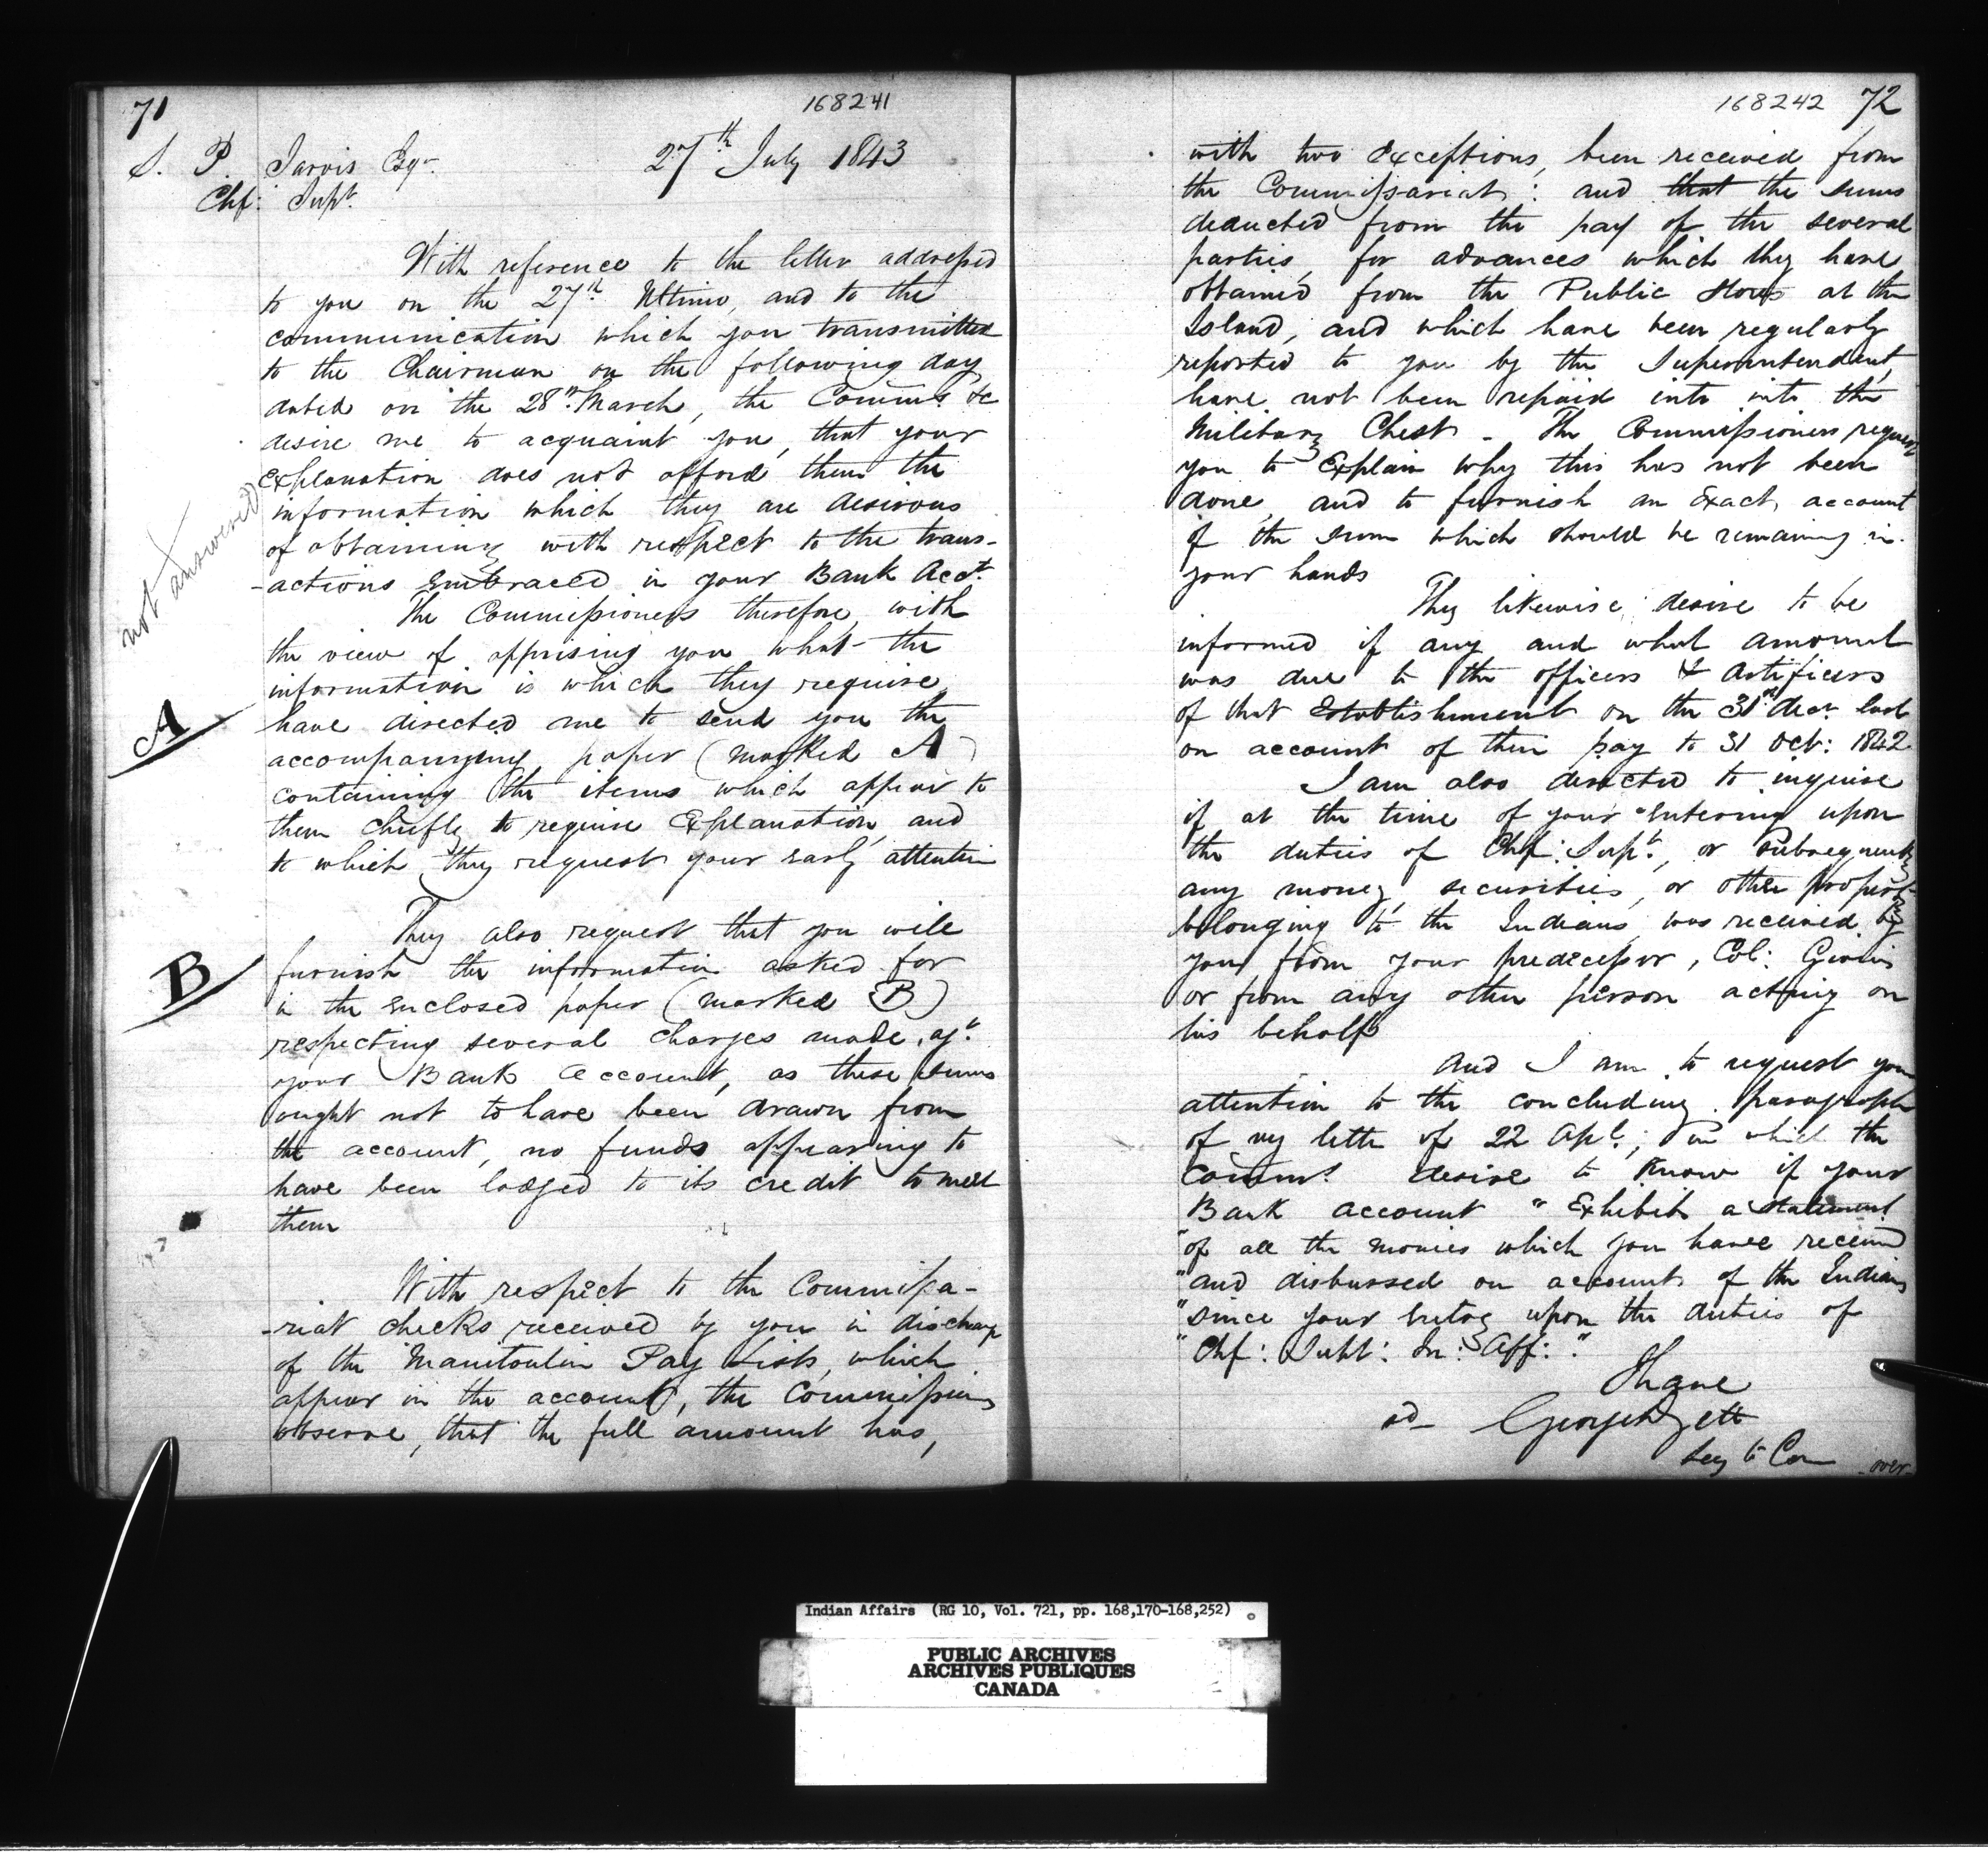 71
168241
S. P. Jarvis Esqr
27th July 1843
Chf: Supt.
With reference to the letter addressed
to you on the 27th Ultimo, and to the
communication which you transmitted
to the Chairman on the following day,
dated on the 28th March, the Comms. &c
desire me to acquaint you, that your
explanation does not afford them the
information which they are desirous
of obtaining with respect to the trans-
-actions embraced in your Bank Acct.
not answered
The Commissioners therefore, with
the view of apprising you what the
information is which they require
have directed me to send you the
A
accompanying paper (marked A)
containing the items which appear to
them chiefly to require Explanation, and
to which they request your early attention
They also request that you will
B
furnish the information asked for
in the enclosed paper (marked B)
respecting several charges made agt.
your Bank account, as these sums
ought not to have been drawn from
the account, no funds appearing to
have been lodged to its credit to meet
them
With respect to the Commissa-
-riat checks received by you in discharge
of the Manitoulin Pay Lists, which
appear in the account, the Commissioners
observe, that the full amount has,
168242 72
with two exceptions, been received from
the Commissariat: and that the sums
deducted from the pay of the several
parties, for advances which they have
obtained from the Public Stores at the
Island, and which have been regularly
reported to you by the Superintendent,
have not been repaid into into the
Military Chest - The Commissioners request
you to Explain why this has not been
done, and to furnish an Exact account
of the sum which should be remaining in
your hands
They likewise desire to be
informed if any and what amount
was due to the officers & Artificers
of that Establishment on the 31st Decr. last
on account of their pay to 31 Oct: 1842
I am also directed to inquire
if at the time of your entering upon
the duties of Chf: Supt., or subsequently
any money, securities, or other property
belonging to the Indians was received by
you from your predecessor, Col: Givins
or from any other person acting on
his behalf
And I am to request your
attention to the concluding paragraph
of my letter of 22 Apl.; in which the
Comms. desire to know if your
Bank account "Exhibits a statement
"of all the monies which you have received
"and disbursed on account of the Indians
"since your entry upon the duties of
"Chf: Supt: In: Aff: "
I have
Secy to Com
-over-
Indian Affairs (RG 10, Vol. 721, pp. 168,170-168,252)
PUBLIC ARCHIVES
ARCHIVES PUBLIQUES
CANADA